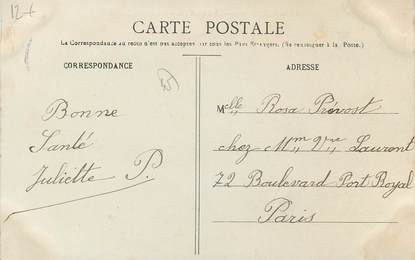 12+
CARTE POSTALE
La Correspondance au recto n'est pas acceptée par tous les Pays Étrangers. (Se renseigner à la Poste.)
CORRESPONDANCE
ADRESSE
Bonne
Santé
Juliette P.
Melle Rosa Prévost
chez Mm Vve Laurent
72 Boulevard Port Royal
Paris